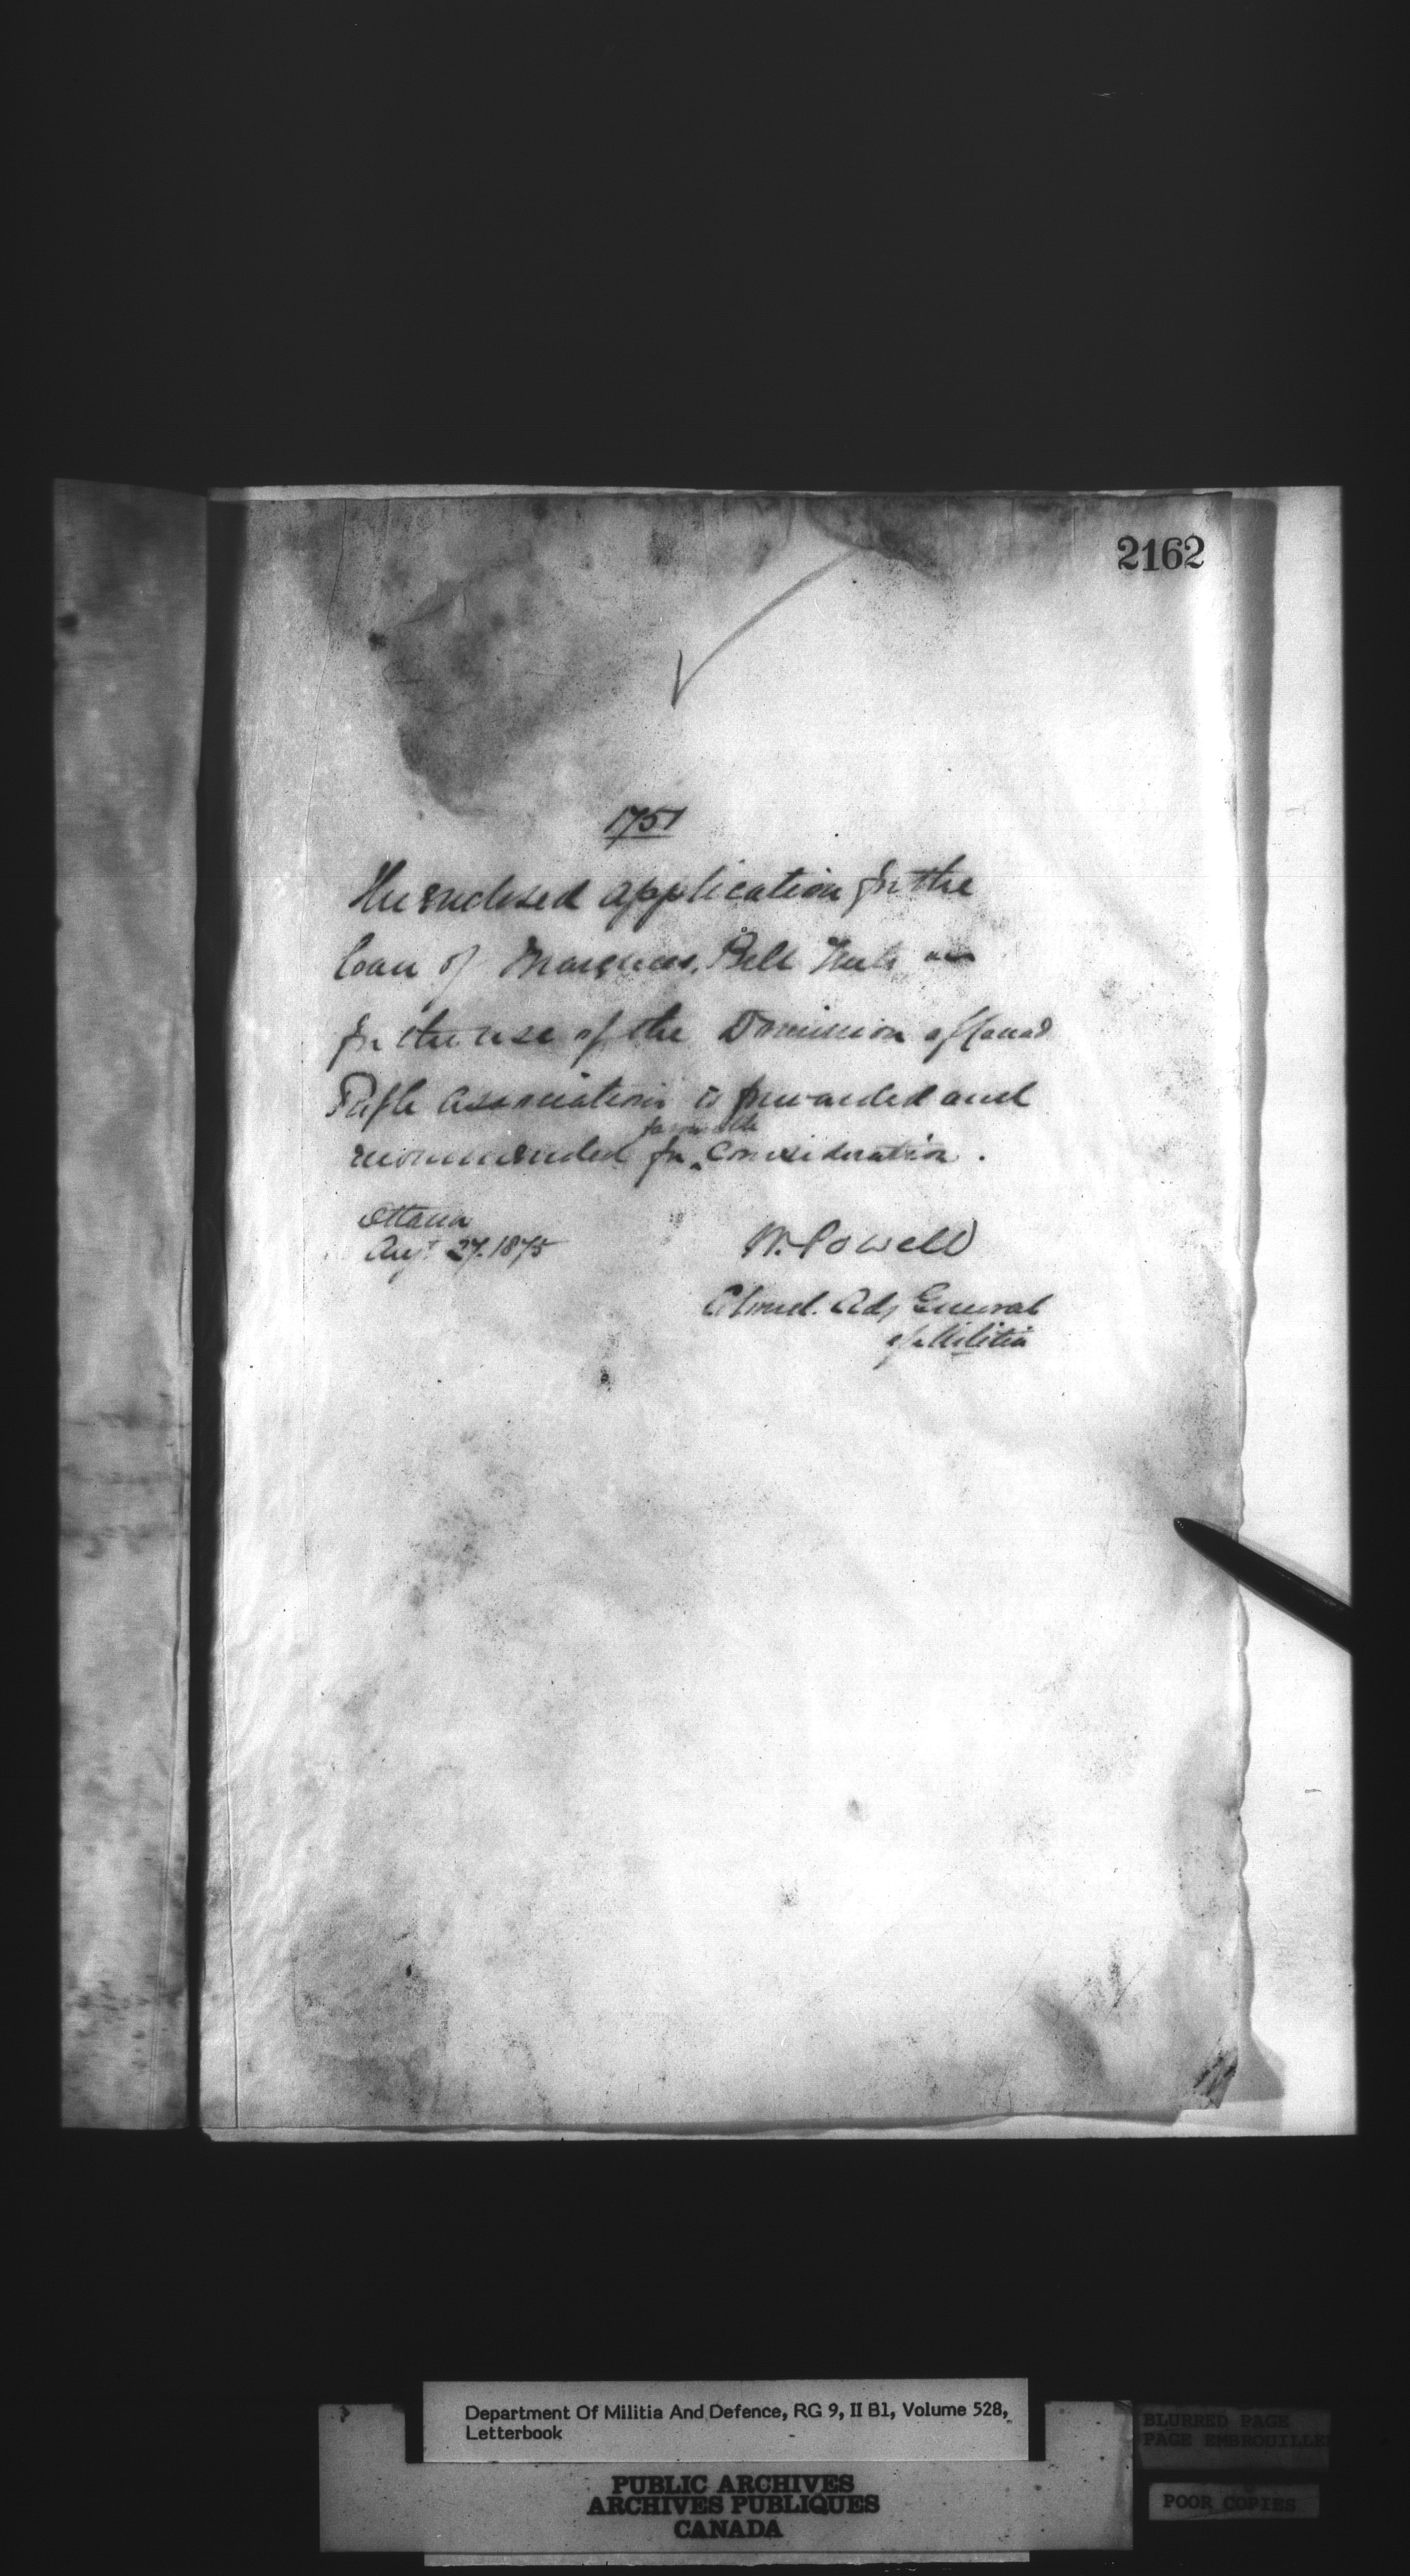 2162
1751
The enclosed application for the
loan of Marquees, Bell Tents
for the use of the Dominion of Canada
Rifle Association is forwarded and
favorable
recommended for ‸ Consideration.
Ottawa
Augt 27. 1875
W. Powell
Colonel. Adj General
of Militia
Department Of Militia And Defence, RG 9, II B1, Volume 528,
Letterbook
PUBLIC ARCHIVES
ARCHIVES PUBLIQUES
CANADA
BLURRED PAGE
PAGE EMBROUILLE
POOR COPIES